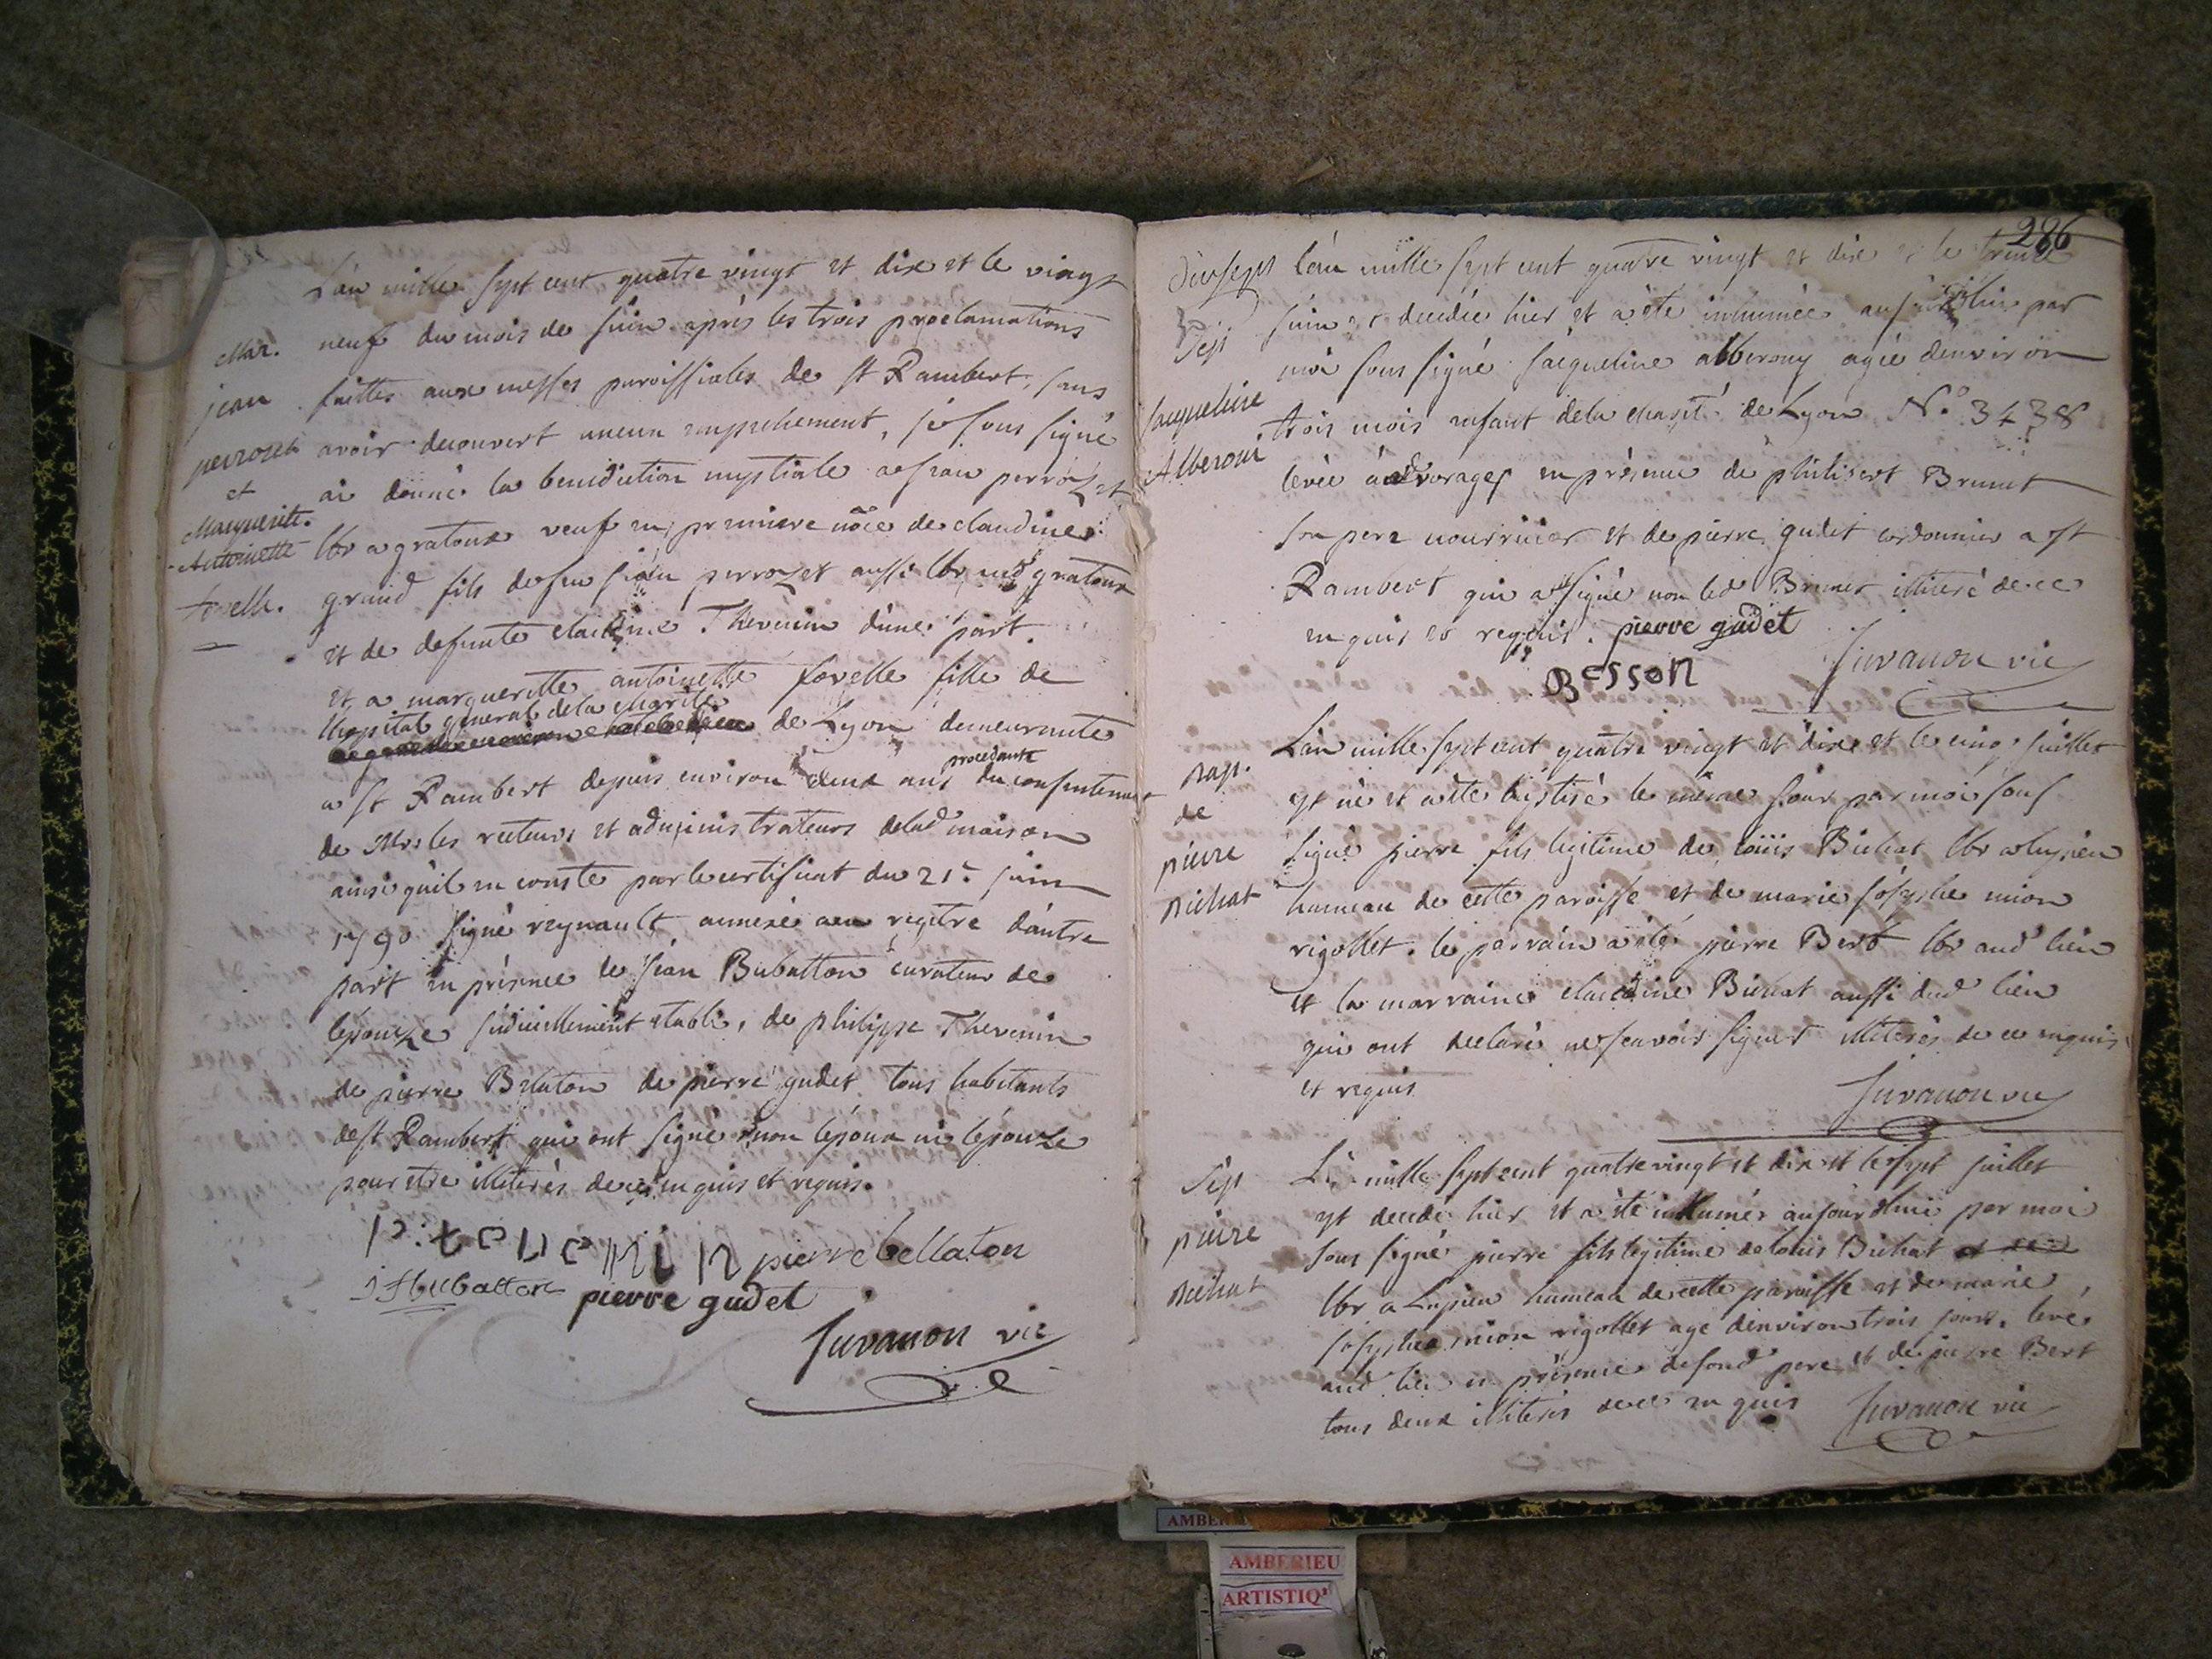 L'an mille sept cent quatre vingt et dix et le vingt
Mar. neuf du mois de juin après les trois proclamations
jean faittes aux messes paroissiales de St Rambert, sans
perrozet avoir decouvert aucun empechement, je sous signé
et ai donné la benediction nuptiale a jean perrozet
Marguerite
Antoinette lbr a gratoux veuf en premiere nôce de claudine
forelle. grand fils de feu jean perrozet aussi lbr aud gratoux
et de defunte claudine Thevenin d'une part
et a marguerite antoinette forelle fille de
l'hopital general de la charité
de Lyon demeurante
procedante
a St Rambert depuis environ deux ans du consentement
de Mrs les recteurs et administrateurs delad maison
ainsi qu'il en conste par le certificat du 21e juin
1790 signé reynault annexé auregitre d'autre
part en présence de jean Bubatton curateur de
lépouze judiciellement etabli, de philippe Thevenin
de pierre Belaton de pierre gudet tous habitants
de St Rambert qui ont signé non l'époux ni l'épouze
pour etre illiterés de ce enquis et requis.
pierre bellaton
pierre gudet
Juvanon vic
286
L'an mille sept cent quatre vingt et dix et le trente
Sep juin est decedée hier et a été inhumée aujourdhui par
moi sous signé jacqueline alberony agée denviron
Jacqueline
Alberoni
trois mois enfant de la charité de Lyon N.o 3438
levée en présence de philibert Brunet
son pere nourricier et de pierre gudet cordonnier a St
Rambert qui a signé non led Brunet illiteré de ce
enquis et requis. pierre gudet
Besson Juvanon vic
L'an mille sept cent quatre vingt et dix et le cinq juillet
bap.
de
est né et a été baptisé le même jour par moi sous
pierre signé pierre fils legitime de louis Bichat lbr a lupieu
bichat hameau de cette paroisse et de marie josephe mion
rigollet. le parrain a été pierre Bert lbr aud lieu
et la marraine claudine Bichat aussi dud lieu
qui ont declaré ne scavoir signer illiterés de ce enquis
et requis
Juvanon vic
Sep L'an mille sept cent quatre vingt et dix et le sept juillet
est decedé hier et a été inhumé aujourdhui par moi
pierre sous signé pierre fils legitime de louis Bichat
bichat lbr a Lupieu hameau de cette paroisse et de marie
josephe mion rigollet age denviron trois jours, levé
aud lieu en présence de sond pere et de pierre Bert
tous deux illiterés de ce enquis Juvanon vic
AMBERIEU
ARTISTIQ